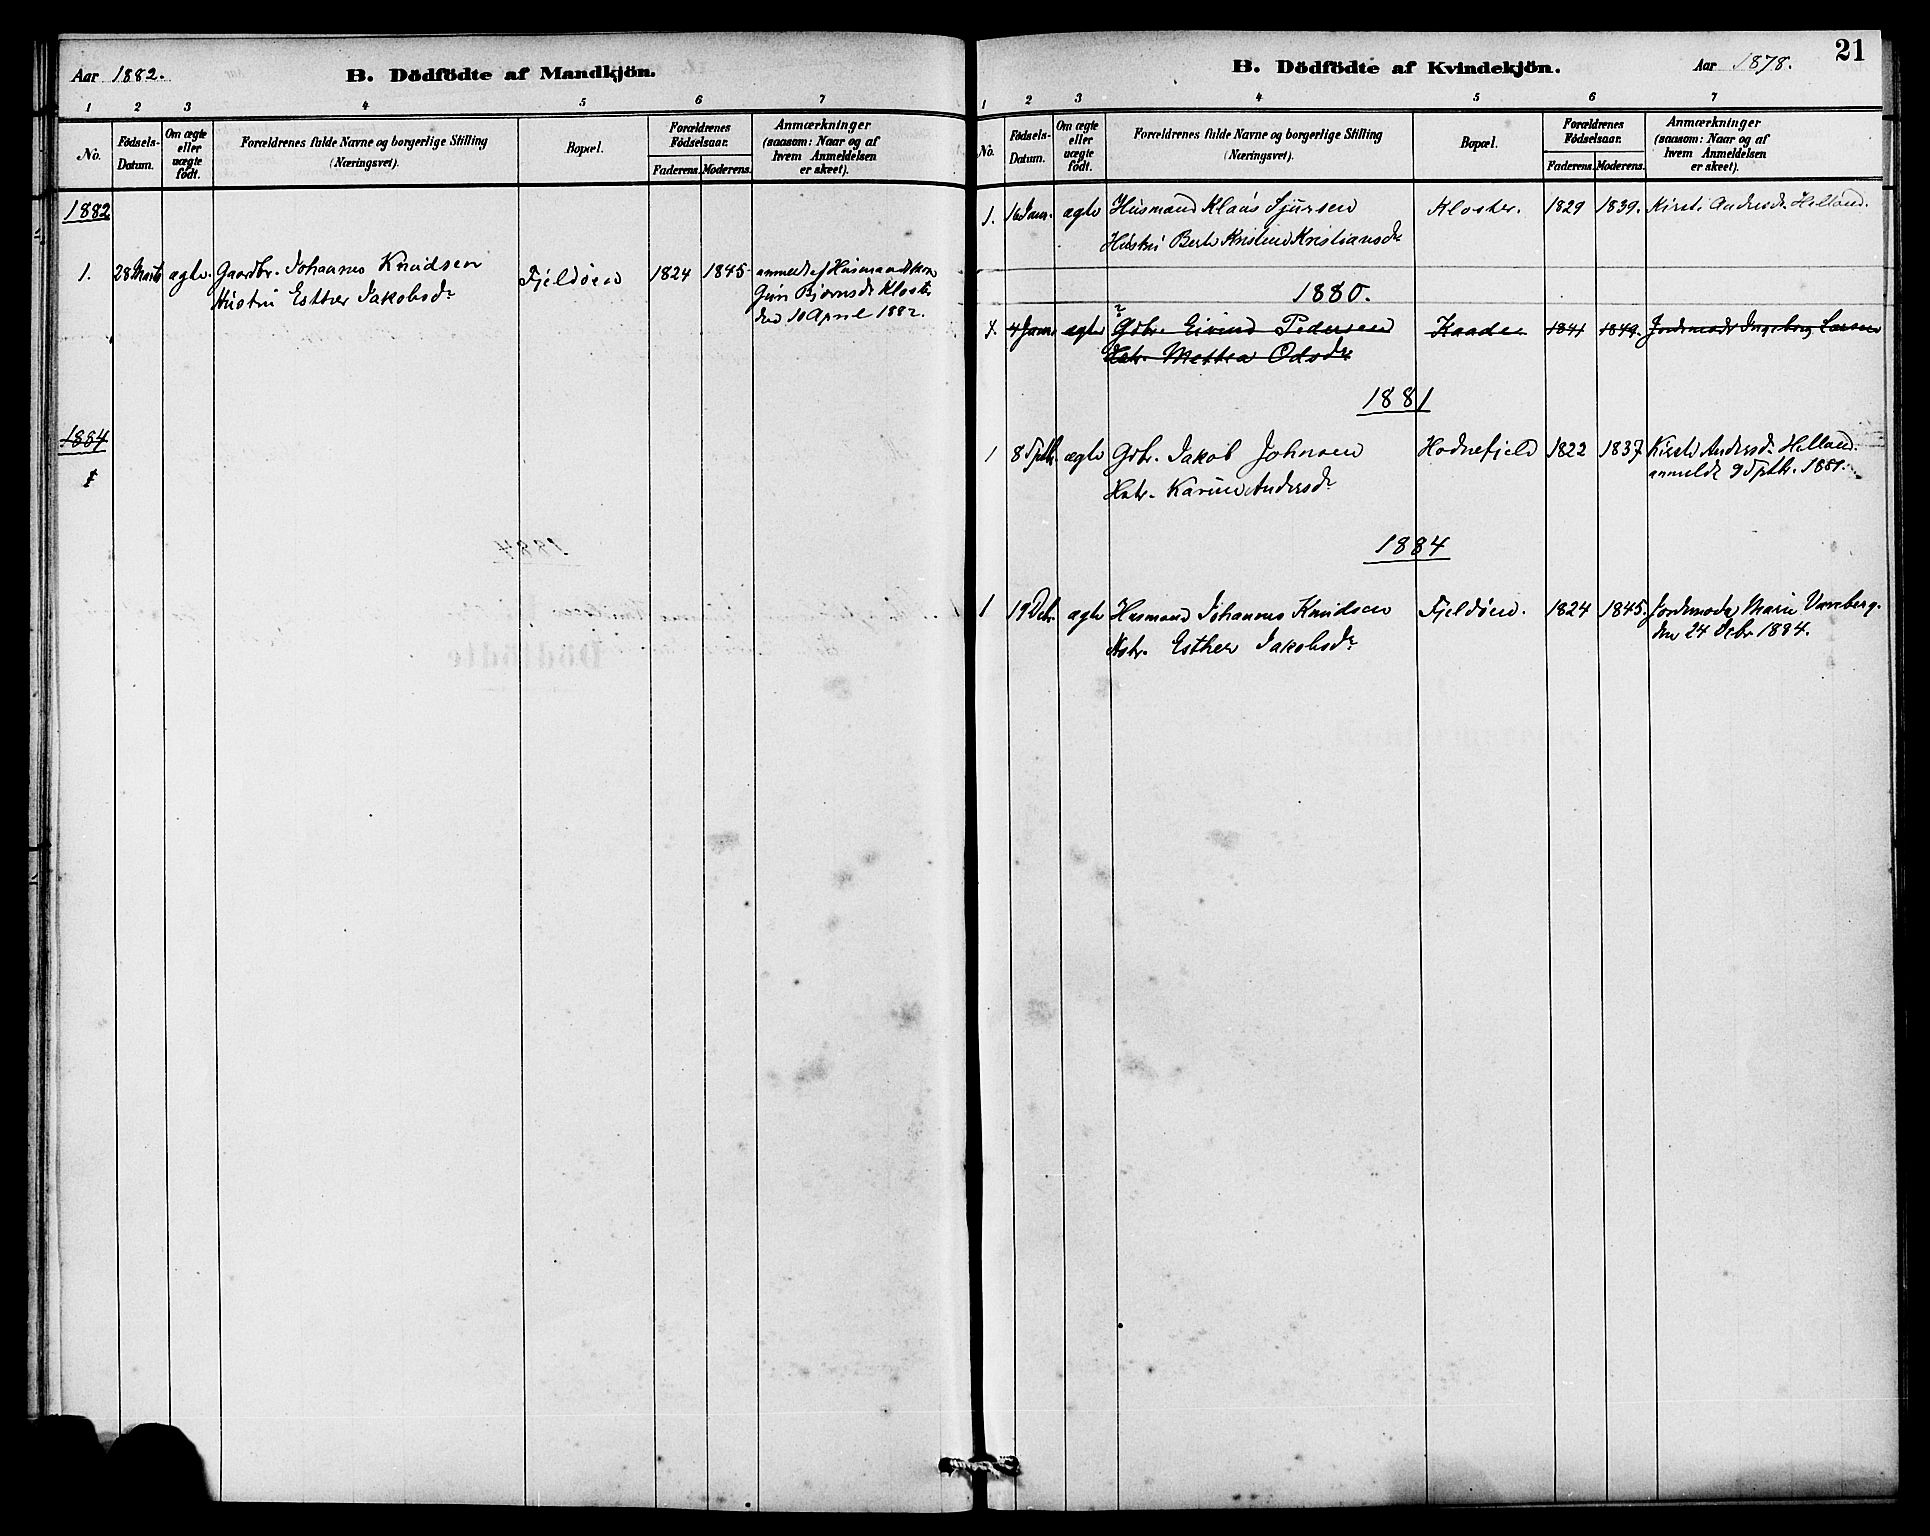 Aar 1882.
B. Dödfödte af Mandkjön.
1 2 3 4 5 6 7
No.
Fødsels-
Datum.
Om ægte
eller
uægte
født.
Forældrenes fulde Navne og borgerlige Stilling
(Næringsvei).
Bopæl.
Forældrenes
Fødselsaar.
Faderens. Moderens.
Anmærkninger
(saasom: Naar og af
hvem Anmeldelsen
er skeet).
1882
1. 28 Marts ægte. Gaardbr. Johannes Knudsen Fjeldøen 1824 1845 anmeldt af Husmandskone
Hustru Esther Jakobsdr Guri Bjørnsdr Kloster
den 10 April 1882.
1884
1
B. Dödfödte af Kvindekjön.
Aar 1878.
21
1 2 3 4 5 6 7
No.
Fødsels-
Datum.
Om ægte
eller
uægte
født.
Forældrenes fulde Navne og borgerlige Stilling
(Næringsvei).
Bopæl.
Forældrenes
Fødselsaar.
Faderens. Moderens.
Anmærkninger
(saasom: Naar og af
hvem Anmeldelsen
er skeet).
1. 16 Janr. ægte Husmand Klaus Sjursen Kloster. 1829 1839. Kirsti Andersdr Helland.
Hustru Berte Kristine Kristiansdr
1880.
1. 4 Janr ægte Gdbr. Eivind Pedersen Kaade 1841 1849. Jordemoder Ingeborg Larsen
Hstr. Mettea Odsdr
1881
1 8 Sptbr. ægte Gdbr. Jakob Johnsen Hodnefjeld 1822 1837 Kirsti Andersdr. Helland.
Hstr. Karine Andersdr anmeldt 9 Sptbr. 1881.
1884
1 19 Debr. ægte Husmand Johannes Knudsen Fjeldøen. 1824 1845. Jordemoder Marie Varaberg.
Hstr. Esther Jakobsdr den 24 Debr 1884.